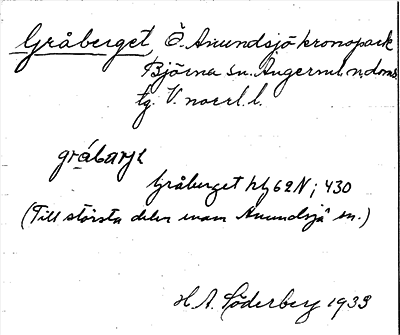 Gråberget, Ö. Anundsjö kronopark
Björna sn. Ångerml. n. doms.
tg. V. norrl. l.
gråbarjɛ
Gråberget hbl 62 N; 430
(Till största delen inom Anundsjö sn.)
H. A. Söderberg 1933